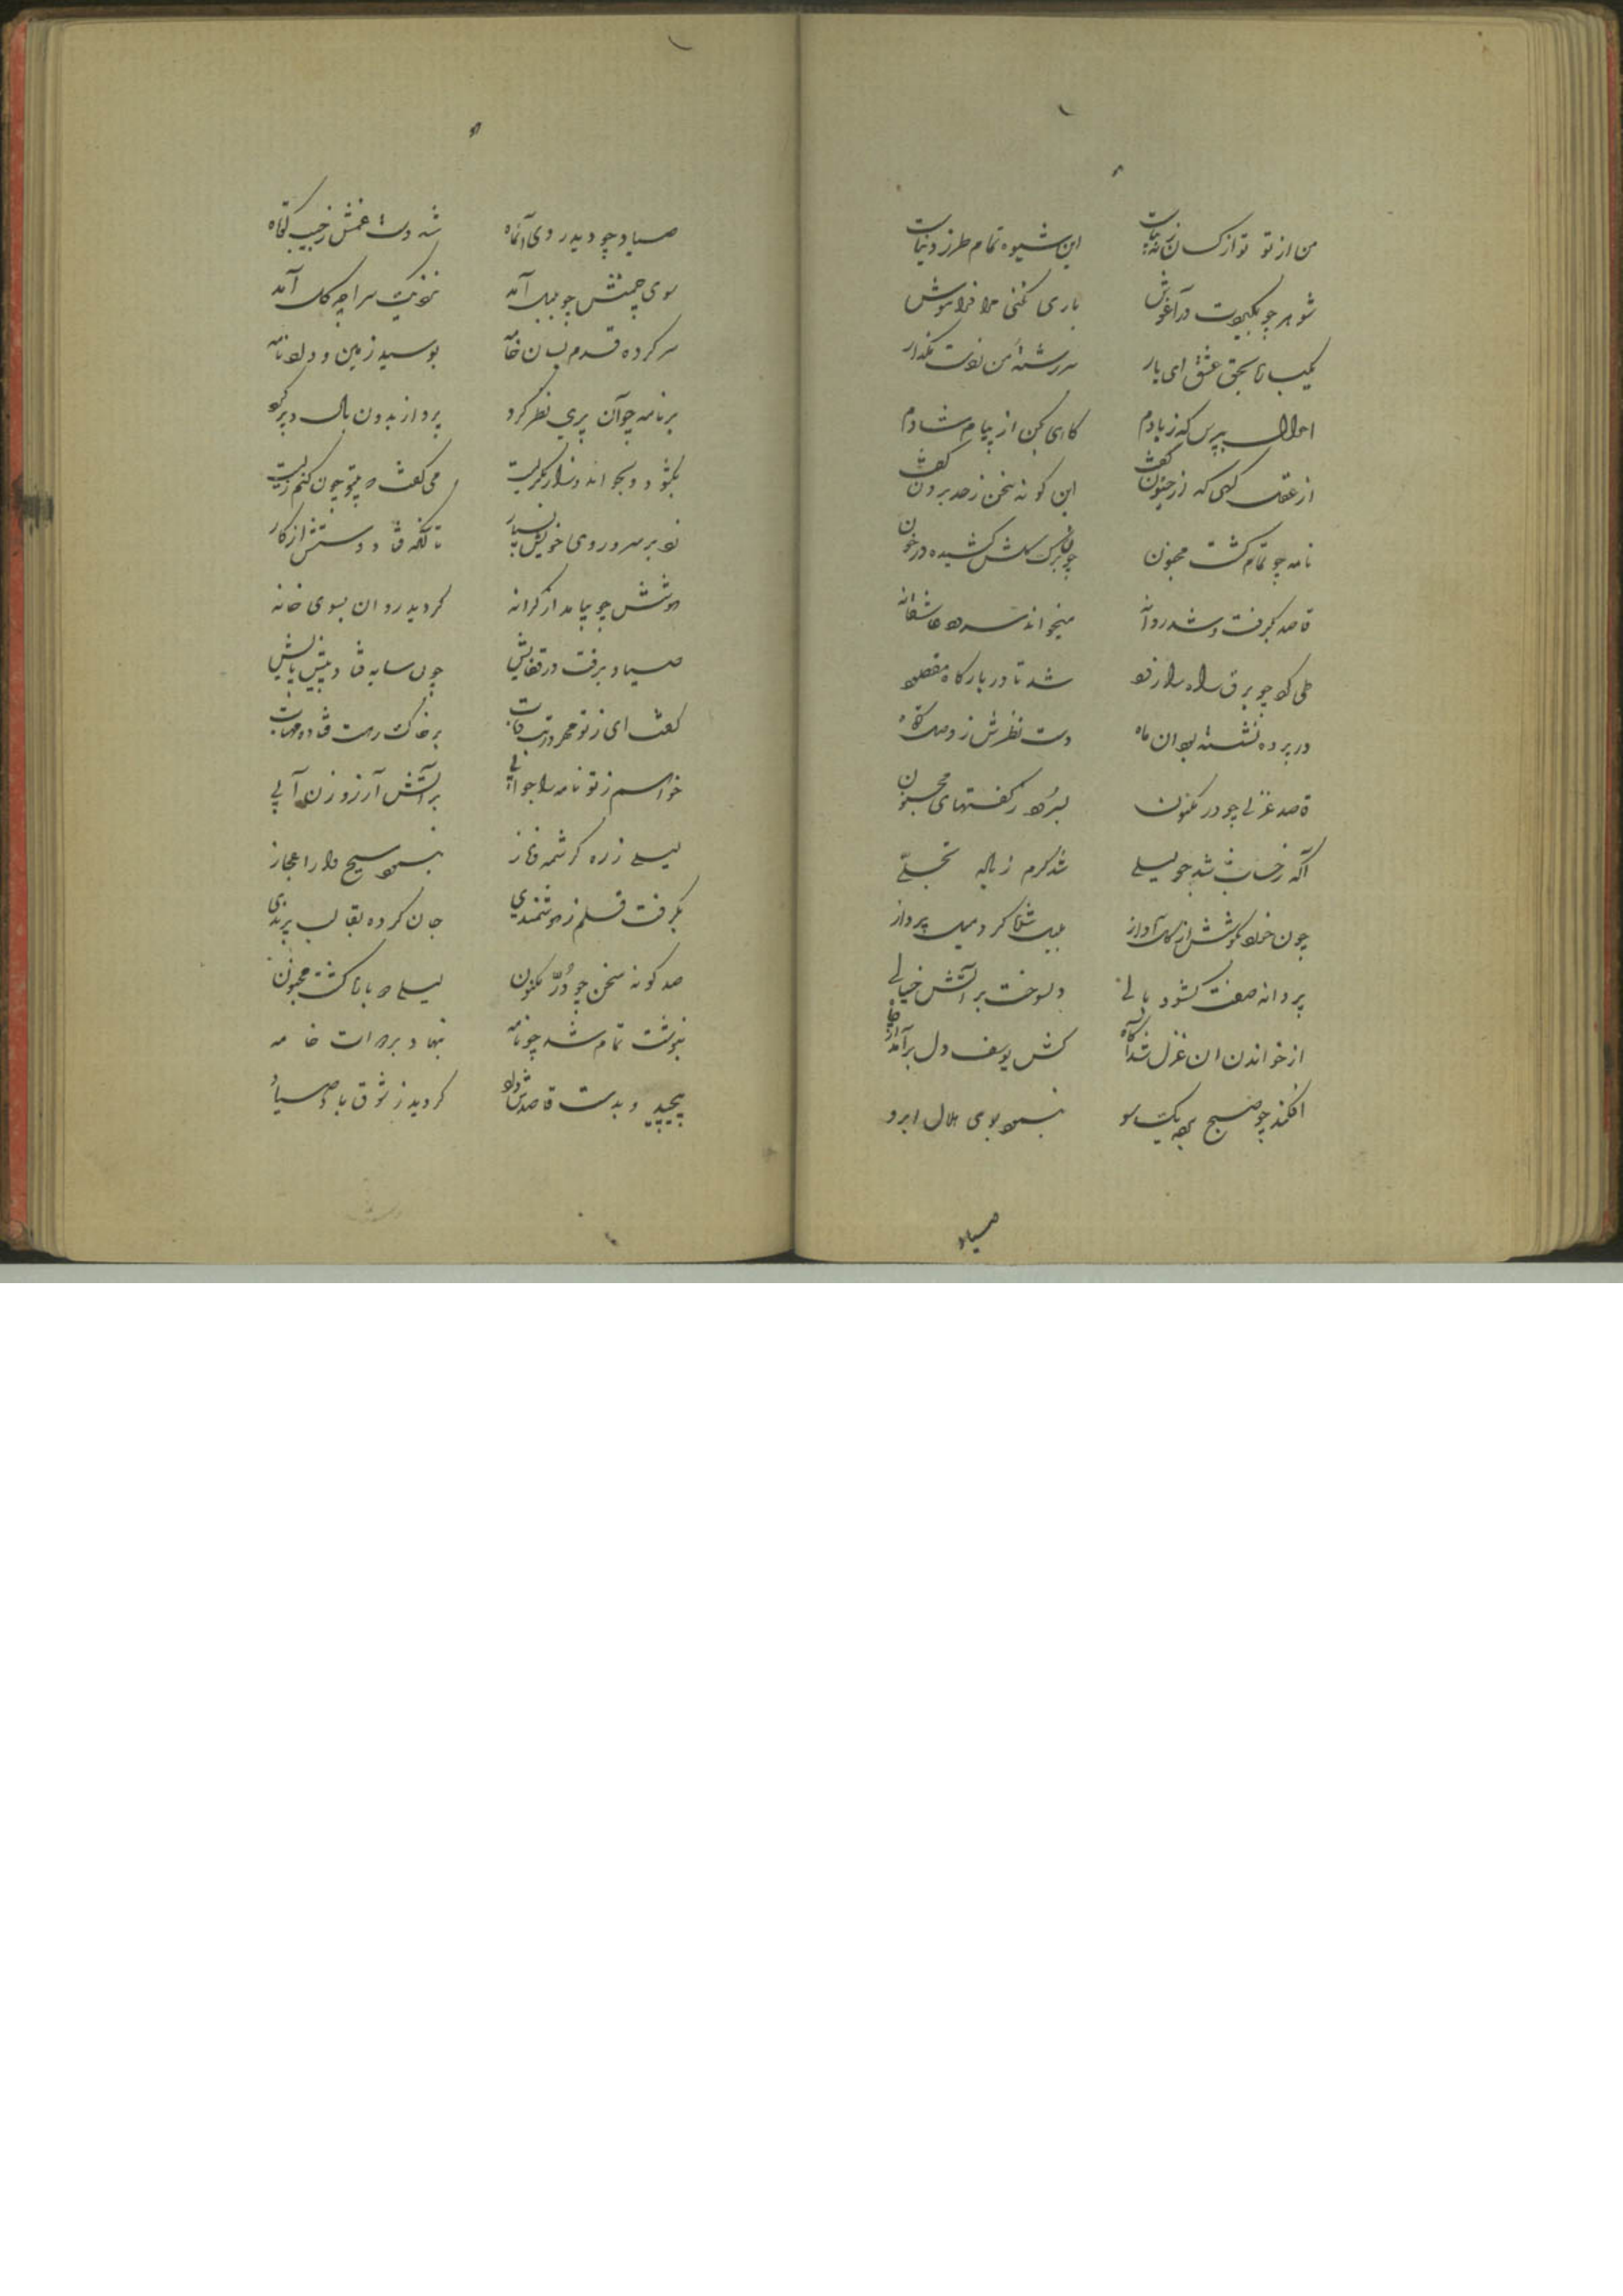 من از تو تو از کسان این شیوه تمام طرز دنیاست
شوهر چو بگیردت در آغوش باری نکنی مرا فراموش
عشق ای یار سررشته من ز دست مگذار
احوال بپرس که ز یادم گاهی بکن از پیام شادم
از عقل گهی که از جنون گفت این گونه سخن ز حد برون گفت
نامه چو تمام گشت مجنون کشیده در خون
قاصد بگرفت و شد روانه میخواند سرود عاشقانه
طی کرد چو برق راه را زود شد تا در بارگاه مقصود
در پرده نشسته بود آن ماه دست نظرش ز وصل کوتاه
قاصد غزلی چو در مکنون بسرود ز گفتهای مجنون
آگه شد چو لیلی شد گرم ز ناله تجلّی
چون خورد بگوشش از گل آواز بلبل شد و کرد میل پرواز
پروانه صفت گشود بالی و سوخت بر آتش خیالی
از خواندن آن غزل شد آگاه کش یوسف دل برآمد از چاه
افکند چو صبح پرده یک سو بنمود بوی هلال ابرو
صیاد
صیاد چو دید روی آنماه شد دست غمش ز جیب کوتاه
سوی چمنش چو بلبل آمد نزدیک سراچه گل آمد
سر کرده قدم بسان خامه بوسید زمین و داد نامه
بر نامه چو آن پری نظر کرد پرواز بدون بال و پر کرد
بگشود و بخواند و زار بگریست می گفت که بیتو چون کنم زیست
زد بر سر و روی خویش بسیار تا آنکه فتاد دستش از کار
هوشش چو بیامد از کرانه گردید روان بسوی خانه
صیاد برفت در قفایش چون سایه فتاد پیش پایش
گفت ای ز تو مهر در تب و تاب بر خاک رهت فتاده مهتاب
خواهم ز تو نامه را جوابی بر آتش آرزو زن آبی
لیلی ز ره کرشمه و ناز بنمود مسیح وار اعجاز
بگرفت قلم ز هوشمندی جان کرده بقالب پرندی
صد گونه سخن چو دُرّ مکنون لیلی گشت مجنون
بنوشت تمام شد چو نامه بنهاد بر دوات خامه
پیچید و بدست قاصدش داد گردید ز شوق صیاد